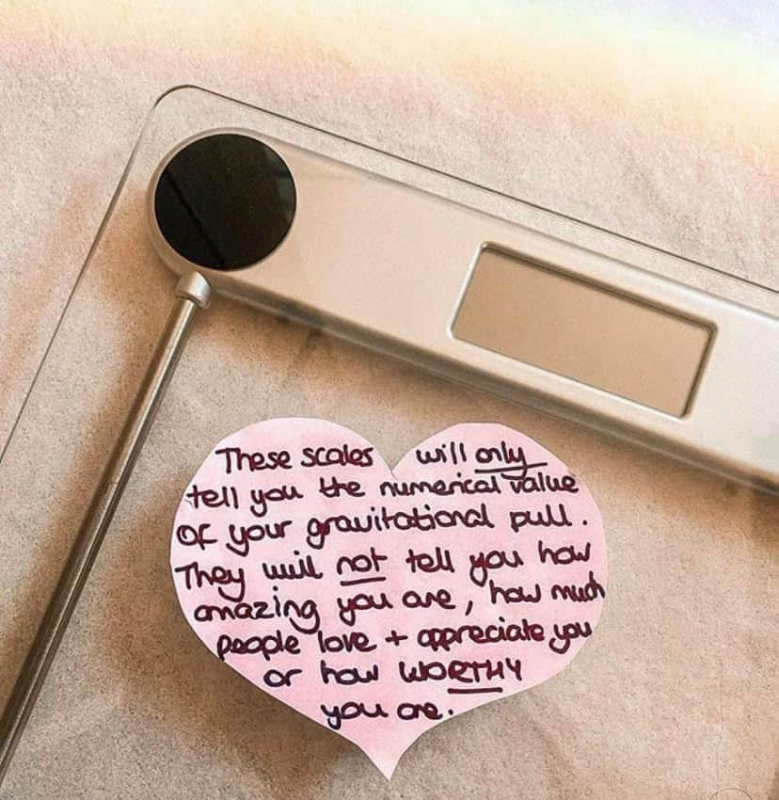 These scales will only
tell you the numerical value
of your gravitational pull.
They will not tell you how
amazing you are, how much
people love + appreciate you
or how WORTHY
you are.